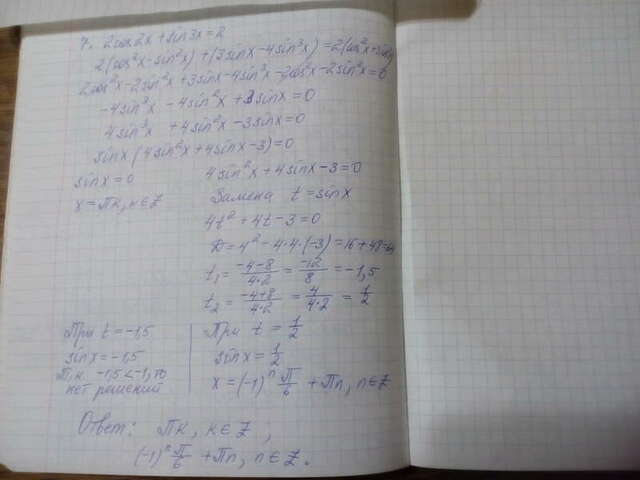 7. 2cos2x + sin3x = 2
2(cos²x - sin²x) + (3sinx - 4sin³x) = 2(cos²x + sin²x)
2cos²x - 2sin²x + 3sinx - 4sin³x - 2cos²x - 2sin²x = 0
-4sin³x - 4sin²x + 3sinx = 0
4sin³x + 4sin²x - 3sinx = 0
sinx(4sin²x + 4sinx - 3) = 0
sinx = 0
x = πk, k∈Z
4sin²x + 4sinx - 3 = 0
Замена t = sinx
4t² + 4t - 3 = 0
D = 4² - 4·4·(-3) = 16 + 48 = 64
t₁ = (-4-8)/(4·2) = -12/8 = -1,5
t₂ = (-4+8)/(4·2) = 4/(4·2) = 1/2
При t = -1,5
sinx = -1,5
Т.к. -1,5 < -1, то
нет решений
При t = 1/2
sinx = 1/2
x = (-1)ⁿ π/6 + πn, n∈Z
Ответ: πk, k∈Z;
(-1)ⁿ π/6 + πn, n∈Z.